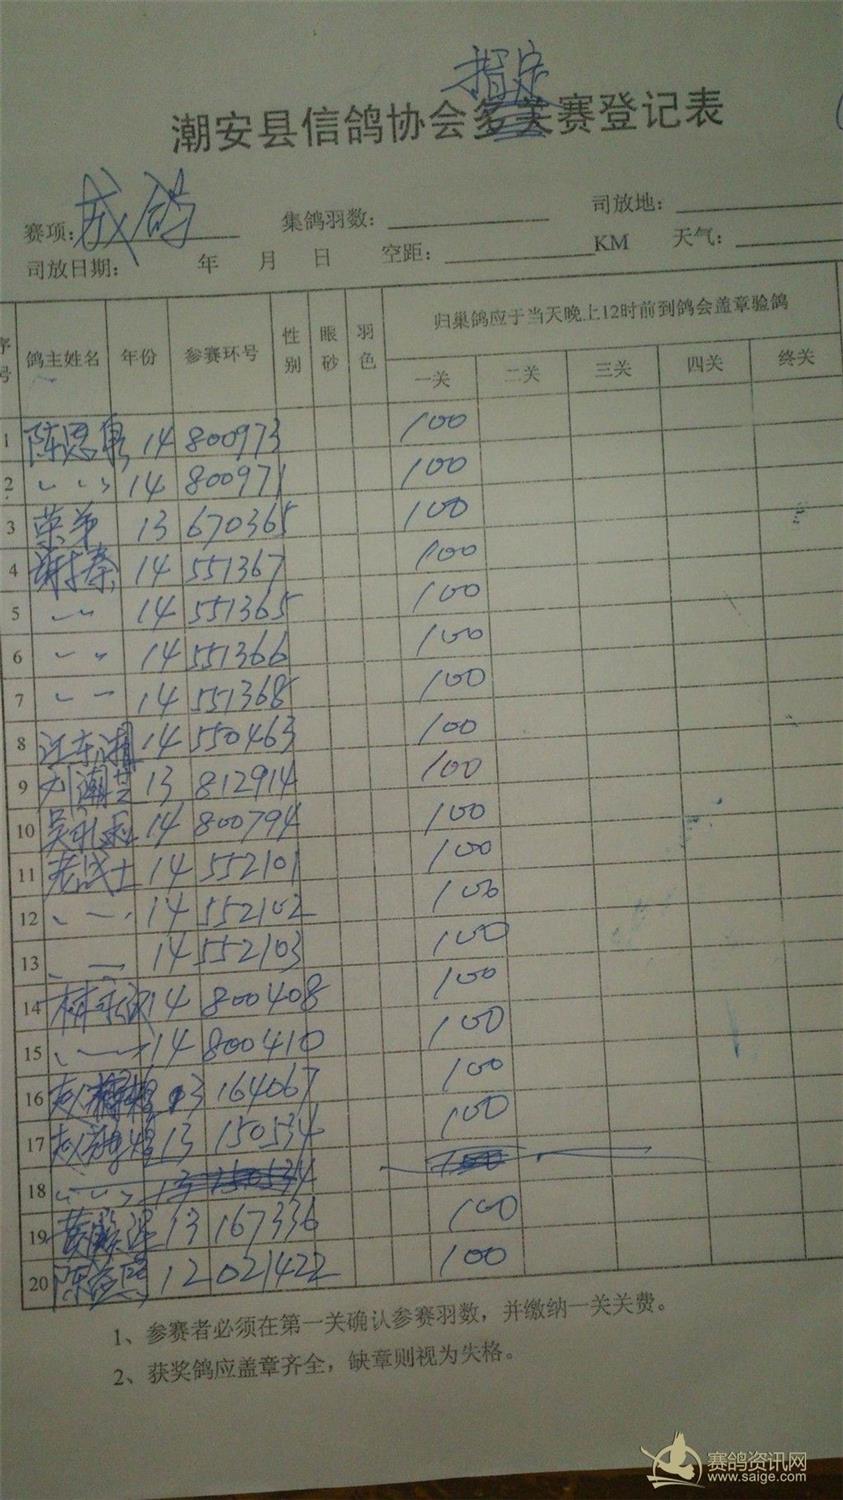 指定
潮安县信鸽协会多关赛登记表
赛项: 成鸽 集鸽羽数: 司放地:
司放日期: 年 月 日 空距: KM 天气:
序号 鸽主姓名 年份 参赛环号 性别 眼砂 羽色 归巢鸽应于当天晚上12时前到鸽会盖章验鸽
一关 二关 三关 四关 终关
1 陈恩 14 800973 100
2 〃 14 800971 100
3 荣弟 13 670365 100
4 谢 14 551367 100
5 〃 14 551365 100
6 〃 14 551366 100
7 〃 14 551368 100
8 江东 14 550463 100
9 刘潮 13 812914 100
10 吴 14 800794 100
11 老战士 14 552101 100
12 〃 14 552102 100
13 〃 14 552103 100
14 林 14 800408 100
15 〃 14 800410 100
16 赵 13 164067 100
17 赵 13 150534 100
18 〃 13 150534 100
19 黄 13 167336 100
20 陈 12 021422 100
1、参赛者必须在第一关确认参赛羽数，并缴纳一关关费。
2、获奖鸽应盖章齐全，缺章则视为失格。
赛鸽资讯网
www.saige.com